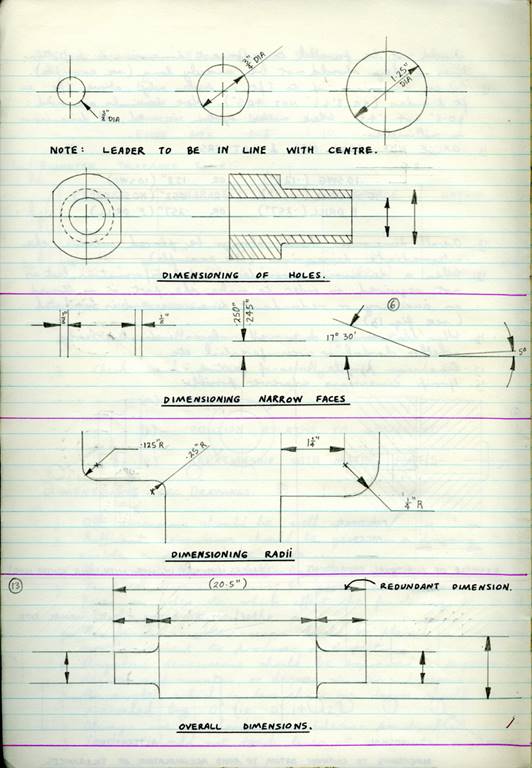 3/8" DIA
3/4" DIA
1·25"
DIA
NOTE: LEADER TO BE IN LINE WITH CENTRE.
DIMENSIONING OF HOLES.
1/8"
·250"
·245"
6
17° 30'
5°
DIMENSIONING NARROW FACES
·125"R
·25"R
1 1/4"
1/4" R
DIMENSIONING RADii
13
(20·5")
REDUNDANT DIMENSION.
OVERALL DIMENSIONS.